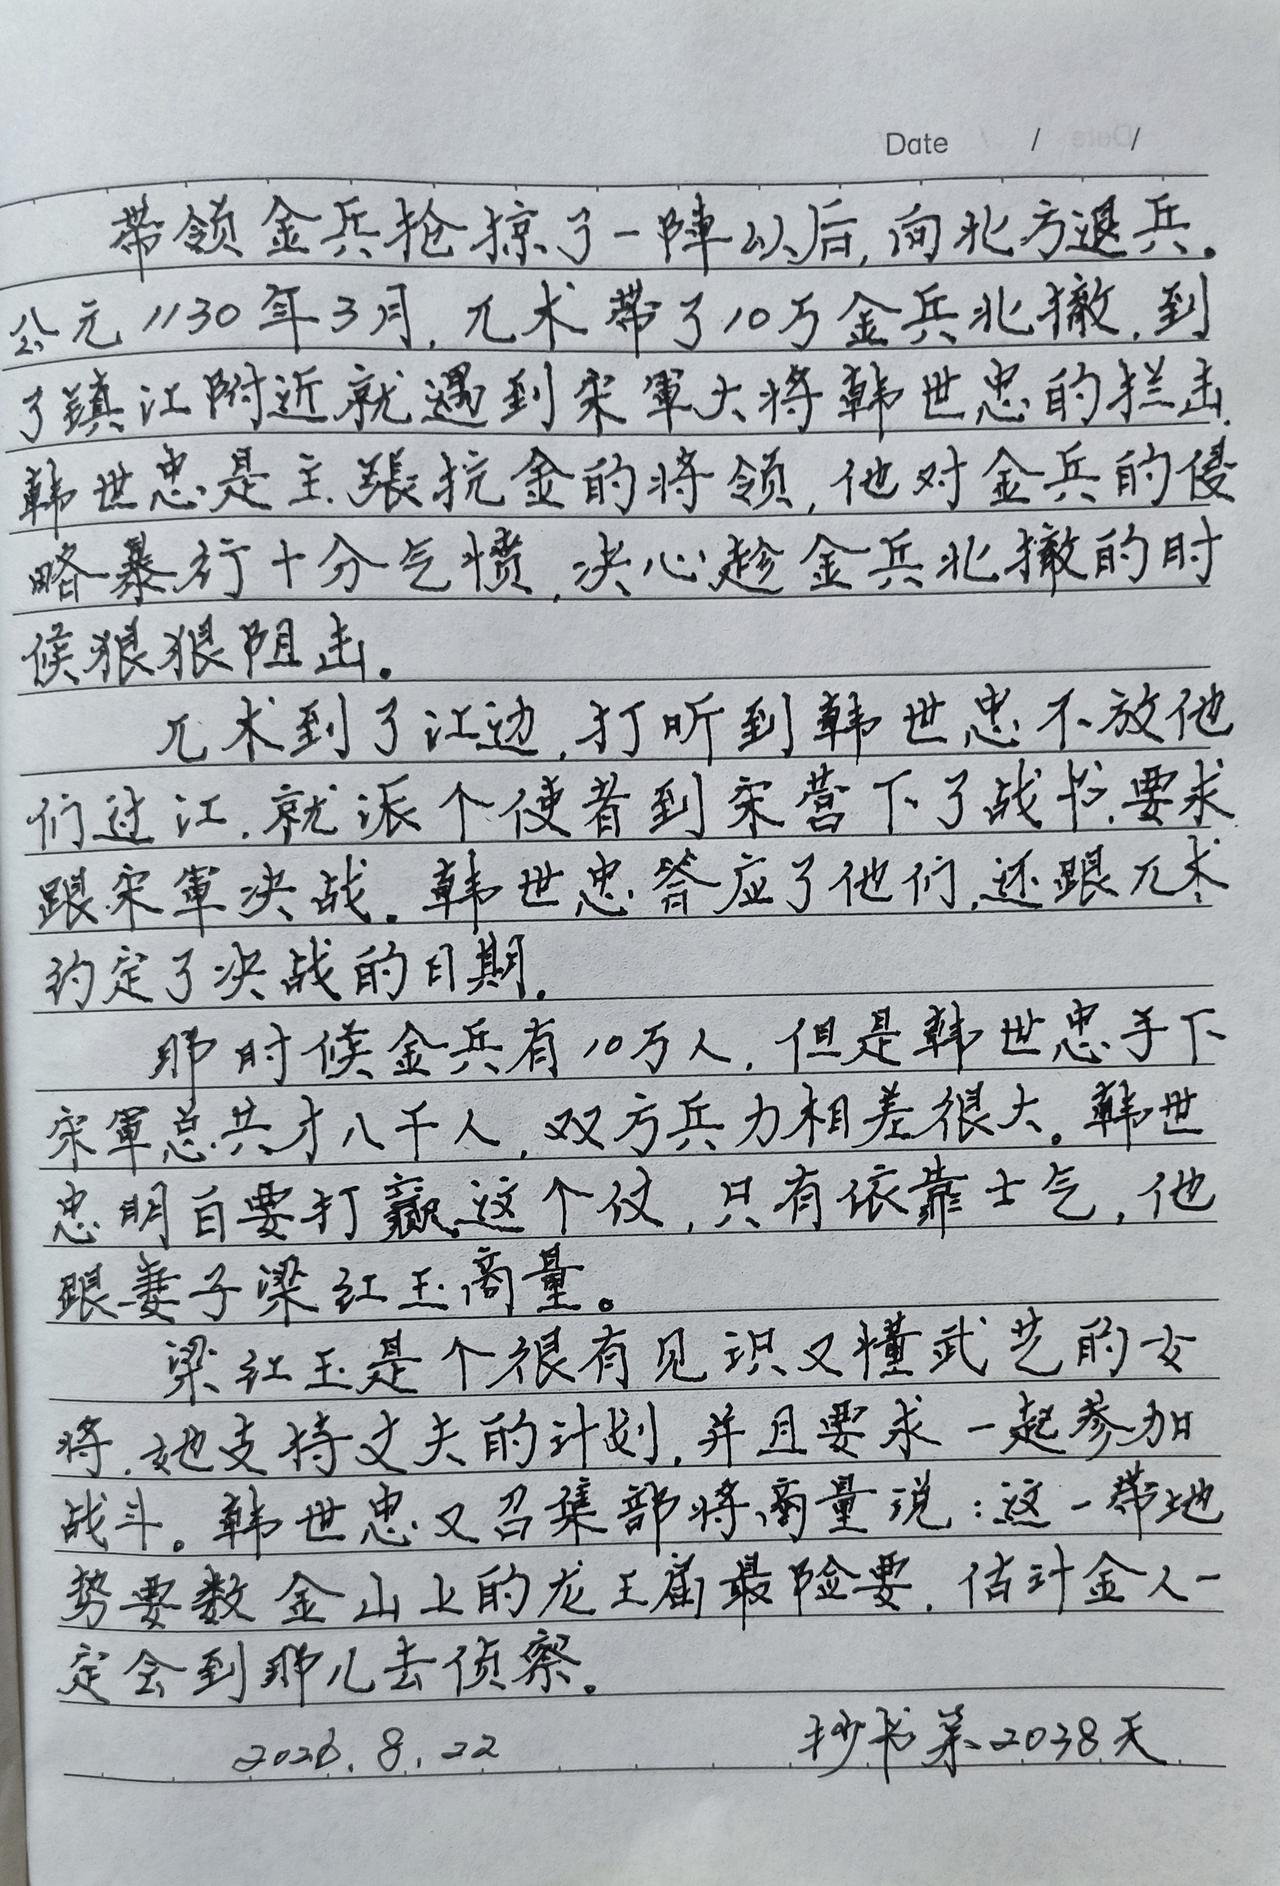 Date / /
带领金兵抢掠了一陣以后,向北方退兵。
公元1130年3月,兀术带了10万金兵北撤,到
了鎮江附近就遇到宋軍大将韩世忠的拦击.
韩世忠是主張抗金的将领,他对金兵的侵
略暴行十分气愤,决心趁金兵北撤的时
候狠狠阻击。
兀术到了江边,打听到韩世忠不放他
们过江,就派个使者到宋营下了战书,要求
跟宋軍决战。韩世忠答应了他们,还跟兀术
约定了决战的日期.
那时候金兵有10万人,但是韩世忠手下
宋軍总共才八千人,双方兵力相差很大。韩世
忠明白要打赢这个仗,只有依靠士气,他
跟妻子梁红玉商量。
梁红玉是个很有见识又懂武艺的女
将,她支持丈夫的计划,并且要求一起参加
战斗。韩世忠又召集部将商量说:这一带地
势要数金山上的龙王庙最险要,估计金人一
定会到那儿去侦察。
2026.8.22 抄书第2038天